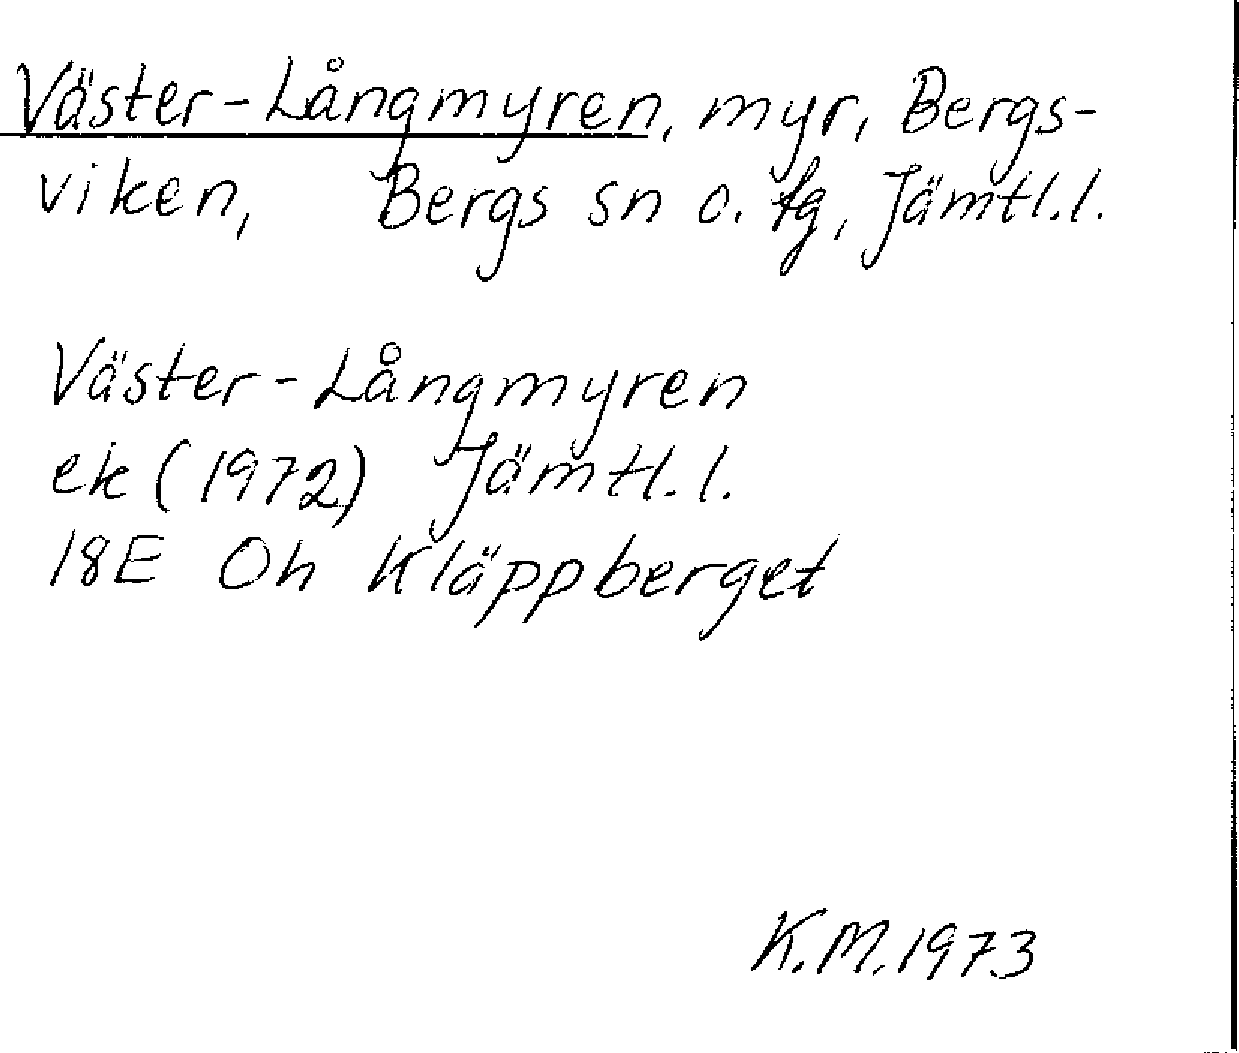 Väster-Långmyren, myr, Bergs-
viken, Bergs sn o. tg, Jämtl.l.
Väster-Långmyren
ek (1972) Jämtl.l.
18E 0h Kläppberget
K.M.1973